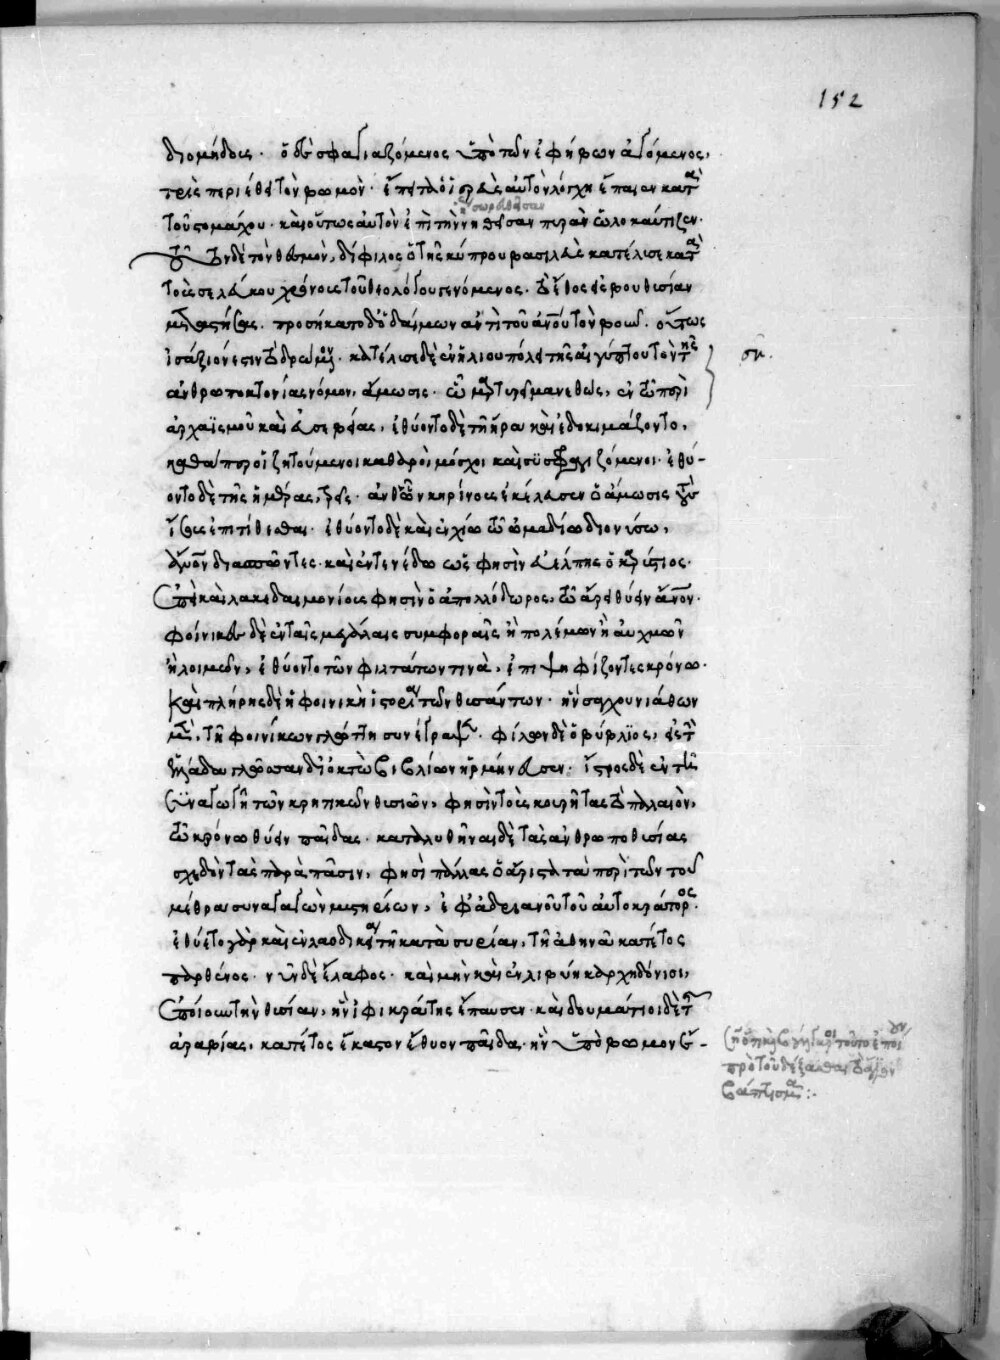 152
διομήδους. ὁ δὲ σφαγιαζόμενος ὑπὸ τῶν ἐφήβων ἀγόμενος,
τρὶς περιέθει τὸν βωμόν. ἔπειτα ὁ ἱερεὺς αὐτὸν λόγχῃ ἔπαιεν κατὰ
τοῦ στομάχου. καὶ οὕτως αὐτὸν ἐπὶ τὴν νησθεῖσαν πυρὰν ὡλοκαύτιζεν.
τοῦτον δὲ τὸν θεσμὸν, δίφιλος ὁ τῆς κύπρου βασιλεὺς κατέλυσε κατὰ
τοὺς σελεύκου χρόνους τοῦ θεολόγου γενόμενος. τὸ ἔθος εἰς βουθυσίαν
μεταστήσας. προσήκατο δὲ ὁ δαίμων ἀντὶ τοῦ ἀνου τὸν βοῦν. οὕτως
ἰσάξιόν ἐστιν τὸ δρώμενον. κατέλυσε δὲ ἐν ἡλίου πόλει τῆς αἰγύπτου τὸν τῆς
ἀνθρωποκτονίας νόμον, ἄμωσις. ὡς μαρτυρεῖ μανεθὼς, ἐν τῷ περὶ
ἀρχαϊσμοῦ καὶ εὐσεβείας. ἐθύοντο δὲ τῇ ἥρᾳ καὶ ἐδοκιμάζοντο,
καθάπερ οἱ ζητούμενοι καθαροὶ μόσχοι καὶ συσφραγιζόμενοι. ἐθύ-
οντο δὲ τῆς ἡμέρας, τρεῖς. ἀνθ' ὧν κηρίνους ἐκέλευσεν ὁ ἄμωσις τοὺς
ἴσους ἐπιτίθεσθαι. ἐθύοντο δὲ καὶ ἐν χίῳ τῷ ὠμαδίῳ διονύσῳ,
ἄνον διασπῶντες. καὶ ἐν τενέδῳ ὥς φησὶν εὔελπις ὁ καρύστιος.
ἐπεὶ καὶ λακεδαιμονίους φησὶν ὁ ἀπολλόδωρος, τῷ ἄρει θύειν ἄνον.
φοίνικες δὲ ἐν ταῖς μεγάλαις συμφοραῖς ἢ πολέμων ἢ αὐχμῶν
ἢ λοιμῶν, ἐθύοντο τῶν φιλτάτων τινὰ, ἐπιψηφίζοντες κρόνῳ.
καὶ πλήρης δὲ ἡ φοινικικὴ ἱστορία τῶν θυσάντων. ἣν σαγχουνιάθων
μὲν, τῇ φοινίκων γλώττῃ συνέγραψεν. φίλων δὲ ὁ βύβλιος, εἰς τὴν
ἑλλάδα γλῶσσαν δι' ὀκτὼ βιβλίων ἡρμήνευσεν. ἴστρος δὲ ἐν τῇ
συναγωγῇ τῶν κρητικῶν θυσιῶν, φησὶν τοὺς κουρῆτας τὸ παλαιὸν,
τῷ κρόνῳ θύειν παῖδας. καταλυθῆναι δὲ τὰς ἀνθρωποθυσίας
σχεδὸν τὰς παρὰ πᾶσιν, φησὶ πάλλας ὁ ἄριστα τὰ περὶ τῶν τοῦ
μίθρα συναγαγὼν μυστηρίων, ἐφ' ἀδριανοῦ τοῦ αὐτοκράτορος.
ἐθύετο γὰρ καὶ ἐν λαοδικείᾳ τῇ κατὰ συρίαν, τῇ ἀθηνᾷ κατ' ἔτος
παρθένος. νῦν δὲ ἔλαφος. καὶ μὴν καὶ ἐν λιβύῃ καρχηδόνιοι,
ἐποίουν τὴν θυσίαν, ἣν ἰφικράτης ἔπαυσεν. καὶ δουμάτιοι δὲ τῆς
ἀραβίας, κατ' ἔτος ἕκαστον ἔθυον παῖδα. ὃν ὑπὸ βωμὸν ἔ-
πρὸ τοῦ δέξασθαι τὸ ἅγιον
βάπτισμα: